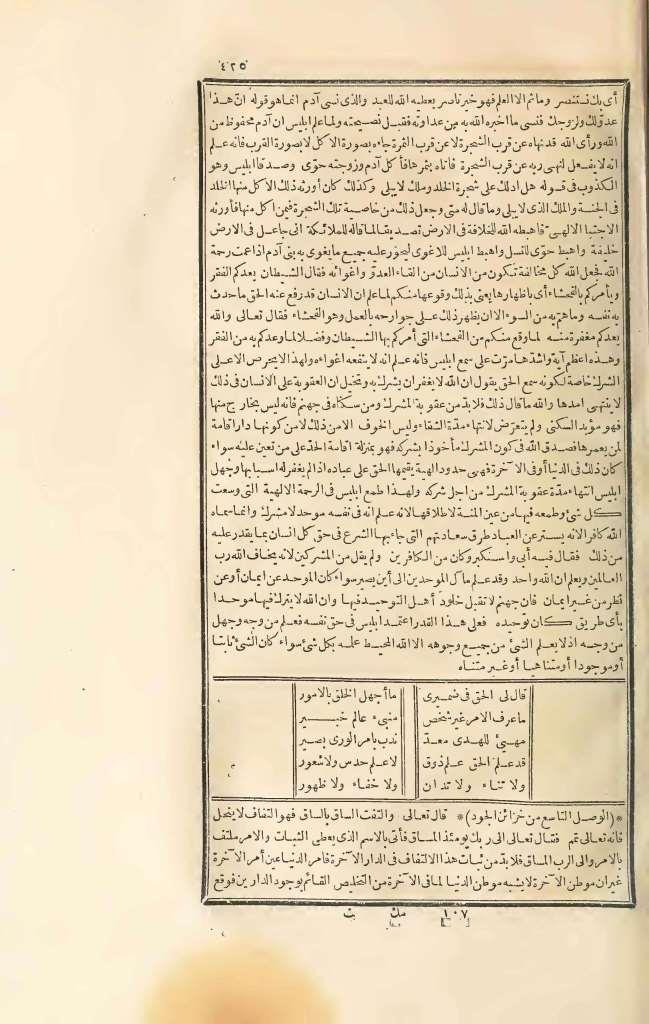 ٤٢٥
أى بك نستنصر وماثم الا العلم فهو خير ناصر يعطيه الله للعبد والذى نسى آدم انما هو قوله ان هذا
عدو لك ولزوجك فنسى ما اخبره الله به من عداوته فقبل نصيحته ولما علم ابليس ان آدم محفوظ من
الله ورأى الله قد نهاه عن قرب الشجرة لا عن قرب الثمرة جاءه بصورة الاكل لا بصورة القرب فانه علم
انه لا يفعل لنهى ربه عن قرب الشجرة فاتاه بثمرها فأكل آدم وزوجته حوى وصدقا ابليس وهو
الكذوب فى قوله هل ادلك على شجرة الخلد وملك لا يبلى وكذلك كان أورثه ذلك الاكل منها الخلد
فى الجنة والملك الذى لا يبلى وما قال له متى وجعل ذلك من خاصية تلك الشجرة فيمن اكل منها فأورثه
الاجتبا الالهى فاهبطه الله للخلافة فى الارض تصديقا لما قاله للملائكة انى جاعل فى الارض
خليفة واهبط حوى للنسل واهبط ابليس للاغوى ليحور عليه جميع ما يغوى به بنى آدم اذا عمت رحمة
الله فجعل الله كل مخالفة تكون من الانسان من القاء العدو واغوائه فقال الشيطان يعدكم الفقر
ويأمركم بالفحشاء أى باظهارها يعنى بذلك وقوعها منكم لما علم ان الانسان قد رفع عنه الحق ما حدث
به نفسه وما هم به من السوء الا ان يظهر ذلك على جوارحه بالعمل وهو الفحشاء فقال تعالى والله
يعدكم مغفرة منه لما وقع منكم من الفحشاء التى أمركم بها الشيطان وفضلا لما وعدكم به من الفقر
وهذه اعظم آية واشدها مرت على سمع ابليس فانه علم انه لا ينفعه اغواءه ولهذا لا يحرص الا على
الشرك خاصة لكونه سمع الحق يقول ان الله لا يغفر ان يشرك به وتخيل ان العقوبة على الانسان فى ذلك
لا ينتهى امدها والله ما قال ذلك فلا بد من عقوبة المشرك ومن سكناه فى جهنم فانه ليس بخارج منها
فهو مؤبد السكنى ولم يتعرض لانتهاء مدة الشقاء وليس الخوف الا من ذلك لا من كونها دار اقامة
لمن يعمرها فصدق الله فى كون المشرك مأخوذا بشركه فهو بمنزلة اقامة الحد على من تعين عليه سواء
كان ذلك فى الدنيا أو فى الآخرة فهى حدود الهية يقيمها الحق على عباده اذا لم يغفر له اسبابها وجهل
ابليس انتهاء مدة عقوبة المشرك من اجل شركه ولهذا طمع ابليس فى الرحمة الالهية التى وسعت
كل شئ وطمعه فيها من عين المنة لاطلاقها لانه علم انه فى نفسه موحد لا مشرك وانما سماه
الله كافرا لانه يستر عن العباد طرق سعادتهم التى جاء بها الشرع فى حق كل انسان بما يقدر عليه
من ذلك فقال فيه أبى واستكبر وكان من الكافرين ولم يقل من المشركين لانه يخاف الله رب
العالمين ويعلم ان الله واحد وقد علم مآل الموحدين الى أين يصير سواء كان الموحد عن ايمان أو عن
نظر من غير ايمان فان جهنم لا تقبل خلود أهل التوحيد فيها وان الله لا يترك فيها موحدا
بأى طريق كان توحيده فعلى هذا القدر اعتمد ابليس فى حق نفسه فعلم من وجه وجهل
من وجه اذ لا يعلم الشئ من جميع وجوهه الا الله المحيط علمه بكل شئ سواء كان الشئ ثابتا
أو موجودا أو متناهيا أو غير متناه
قال لى الحق فى ضميرى ما أجهل الخلق بالامور
ما عرف الامر غير شخص منبىء عالم خبير
مهيئ للهدى معد ندب بامر الورى بصير
قد علم الحق علم ذوق لا علم حدس ولا شعور
ولا تناء ولا تدان ولا خفاء ولا ظهور
* (الوصل التاسع من خزائن الجود) * قال تعالى والتفت الساق بالساق فهو التفاف لا ينحل
فانه تعالى تمم فقال تعالى الى ربك يومئذ المساق فأتى بالاسم الذى يعطى الثبات والامر ملتف
بالامر والى الرب المساق فلا بد من ثبات هذا الالتفاف فى الدار الآخرة فامر الدنيا عين أمر الآخرة
غير ان موطن الآخرة لا يشبه موطن الدنيا لما فى الآخرة من التخليص القائم بوجود الدارين فوقع
١٠٧ مك ث